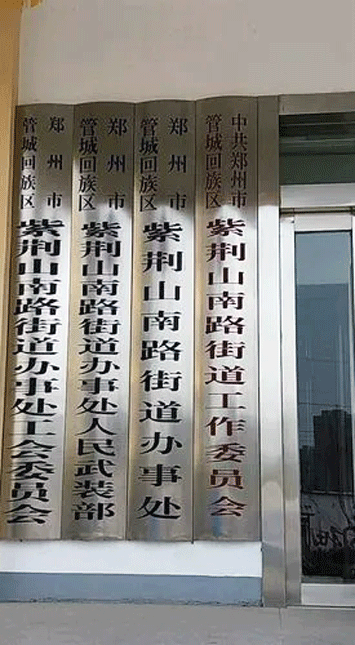 中共郑州市
管城回族区
紫荆山南路街道工作委员会
郑州市
管城回族区
紫荆山南路街道办事处
郑州市
管城回族区
紫荆山南路街道办事处人民武装部
郑州市
管城回族区
紫荆山南路街道办事处工会委员会